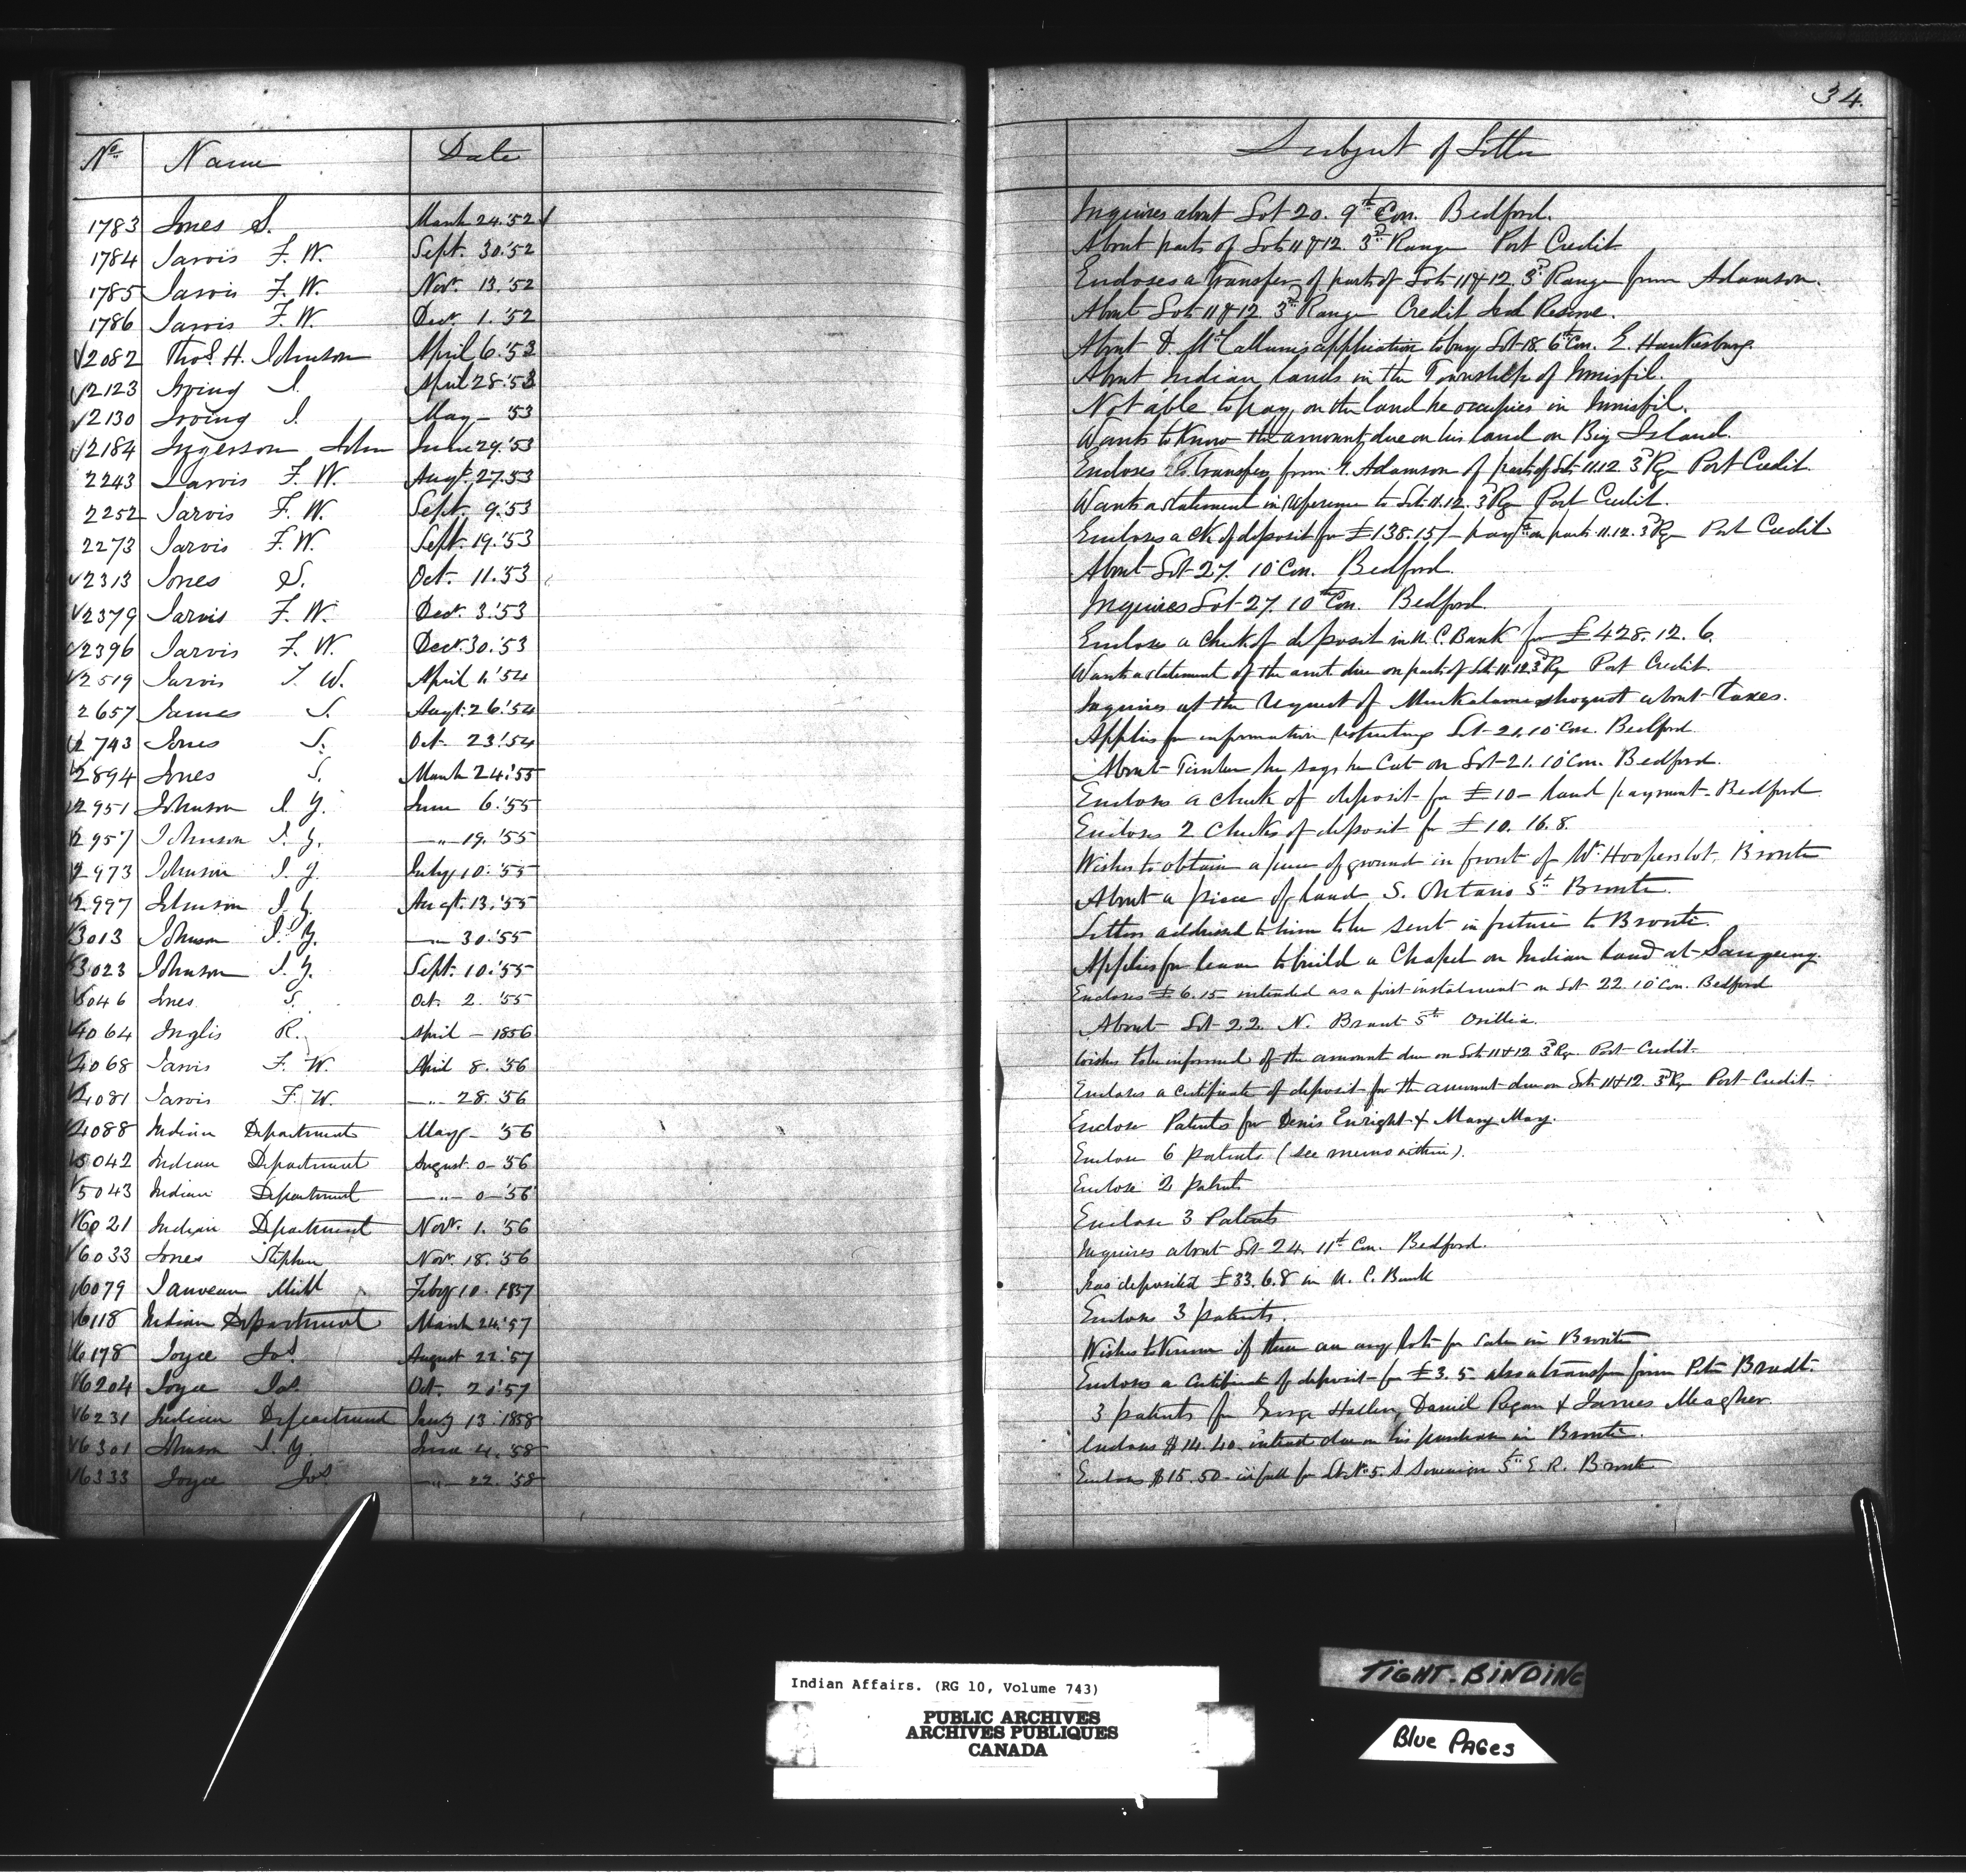 34.
No. Name Date Subject of Letter
1783 Jones S. March 24.'52 Inquires about Lot 20. 9th Con. Bedford.
1784 Jarvis F. W. Sept. 30.'52 About parts of Lots 11 & 12. 3d Range Port Credit
1785 Jarvis F. W. Nov. 13.'52 Encloses a transfer of part of Lots 11 & 12, 3d Range from Adamson.
1786 Jarvis F. W. Dec. 1.'52 About Lots 11 & 12. 3d Range Credit Ind Reserve.
2082 Thos. H. Johnson April 6.'53 About D. McCallum's application to buy Lot 18. 6th Con. E. Hawkesbury.
2123 Irving J. April 28.'53 About Indian lands in the Township of Innisfil.
2130 Irving J. May - '53 Not able to pay on the land he occupies in Innisfil.
2184 Ingerson John June 29.'53 Wants to know the amount due on his land on Big Island.
2243 Jarvis F. W. Augt. 27.53 Encloses transfer from Adamson of part of Lots 11.12 3d Rg Port Credit.
2252 Jarvis F. W. Sept. 9.'53 Wants a statement in reference to Lots 11.12. 3d Rg Port Credit.
2273 Jarvis F. W. Sept. 19.'53 Encloses a Ck of deposit for £138.15/- payt on parts 11.12. 3d Rg Port Credit
2313 Jones S. Oct. 11.'53 About Lot 27. 10 Con. Bedford.
2379 Jarvis F. W. Dec. 3.'53 Inquires Lot 27. 10th Con. Bedford.
2396 Jarvis F. W. Dec. 30.'53 Encloses a check of deposit in U. C. Bank for £428.12.6.
2519 Jarvis F. W. April 1.'54 Wants a statement of the amt. due on parts of Lots 11.12 3d Rg Port Credit.
2657 James S. Augt. 26.'54 Inquires at the request of about taxes.
2743 Jones S. Oct. 23.'54 Applies for information respecting Lot 21, 10 Con. Bedford.
2894 Jones S. March 24.'55 About Timber he says he Cut on Lot 21. 10 Con. Bedford.
2951 Johnson J. Y. June 6.'55 Encloses a check of deposit for £10 - land payment - Bedford
2957 Johnson J. Y. —"— 19.'55 Encloses 2 Checks of deposit for £10.16.8.
2973 Johnson J. Y. July 10.'55 Wishes to obtain a piece of ground in front of W. Hoopers lot, Bronte
2997 Johnson J. Y. Augt. 13.'55 About a piece of land S. Ontario St. Bronte.
3013 Johnson J. Y. —"— 30.'55 Letters addressed to him to be sent in future to Bronte.
3023 Johnson J. Y. Sept. 10.'55 Applies for leave to build a Chapel on Indian land at Saugeeng.
3046 Jones S. Oct. 2.'55 Encloses £6.15 - intended as a first instalment on Lot 22. 10 Con. Bedford
4064 Inglis R. April - 1856 About Lot 22. N. Brant St. Orillia.
4068 Jarvis F. W. April 8.'56 Wishes to be informed of the amount due on Lots 11 & 12 3d Rg. Port Credit.
4081 Jarvis F. W. —"— 28.'56 Encloses a certificate of deposit for the amount due on Lots 11 & 12. 3d Rg Port Credit.
4088 Indian Department May - '56 Enclose Patents for Denis Enright & Mary May.
5042 Indian Department August 0 - '56 Enclose 6 patents (see memo within).
5043 Indian Department —"— 0 - '56 Enclose 2 patents
6021 Indian Department Nov. 1.'56 Enclose 3 Patents
6033 Jones Stephen Nov. 18.'56 Inquires about Lot 24. 11th Con. Bedford.
6079 Feby 10. 1857 has deposited £33.6.8 in U. C. Bank
6118 Indian Department March 24.'57 Encloses 3 patents.
6178 Joyce Jos. August 22.'57 Wishes to know if there are any lots for sale in Bronte
6204 Joyce Jos. Oct. 21.'57 Encloses a certificate of deposit for £3.5 - also a transfer from Peter
6231 Indian Department Jany 13. 1858 3 patents for George Daniel Regan & James Meagher.
6301 Johnson J. Y. June 4.'58 Encloses $14.40, interest due on his purchase in Bronte.
6333 Joyce Jos. —"— 22.'58 Encloses $15.50 - in full for Lot No. 5. S Sovereign St. E. R. Bronte
Indian Affairs. (RG 10, Volume 743)
PUBLIC ARCHIVES
ARCHIVES PUBLIQUES
CANADA
TIGHT-BINDING
Blue PAGes